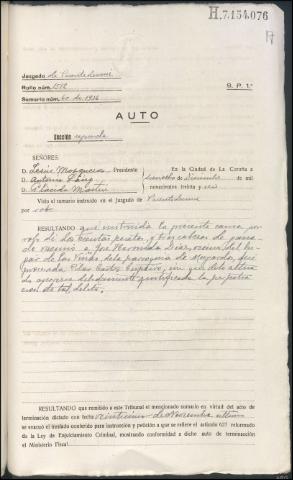 H.7.154.076
Juzgado de Puentedeume
Rollo núm. 1512
Sumario núm. 60 de 1936
S. P. 1.ª
AUTO
Sección segunda
SEÑORES:
D. Jaime Mosquera Presidente
D. Antonio
D. Plácido Martín
En la Ciudad de La Coruña a
de Diciembre de mil
novecientos treinta y seis
Vista el sumario instruido en el Juzgado de Puentedeume
por robo
RESULTANDO que instruida la presente causa por
robo de doscientas pesetas, y tres cabezas de ganado
vacuno a José Hermida Díaz, vecino del lu-
gar de las Viñas, de la parroquia de Mugardos, fue
procesada Pilar Castro, sin que del actua-
do aparezca debidamente justificada la perpetra-
cion de tal delito.
RESULTANDO que remitido a este Tribunal el mencionado sumario en virtud del acto de
terminación dictado con fecha veinticinco de Noviembre último
se evacuó el traslado conferido para instrucción y petición a que se refiere el artículo 627 reformado
de la Ley de Enjuiciamiento Criminal, mostrando conformidad a dicho auto de terminación
el Ministerio Fiscal